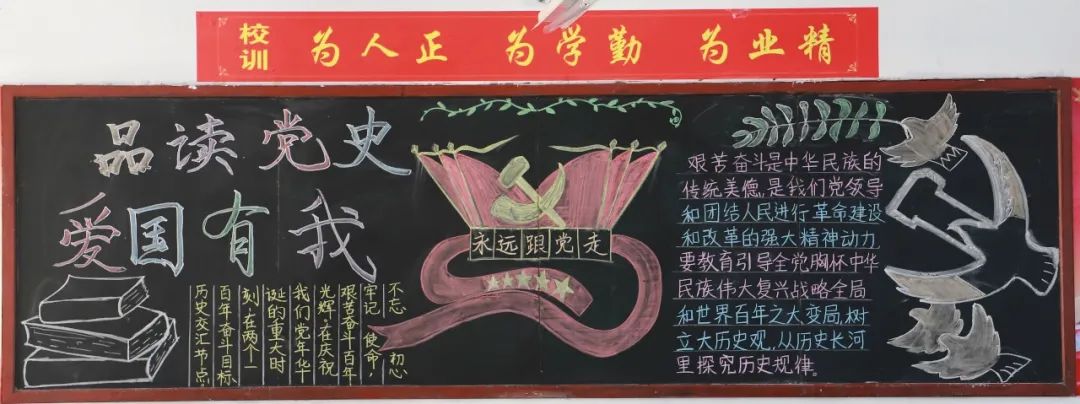 校训
为人正 为学勤 为业精
品读党史
爱国有我
不忘 初心
牢记 使命，
艰苦奋斗百年
光辉，在庆祝
我们党年华
诞的重大时
刻，在两个一
百年奋斗目标
历史交汇节点。
永远跟党走
艰苦奋斗是中华民族的
传统美德，是我们党领导
和团结人民进行革命建设
和改革的强大精神动力
要教育引导全党胸怀中华
民族伟大复兴战略全局
和世界百年之大变局，树
立大历史观，从历史长河
里探究历史规律。